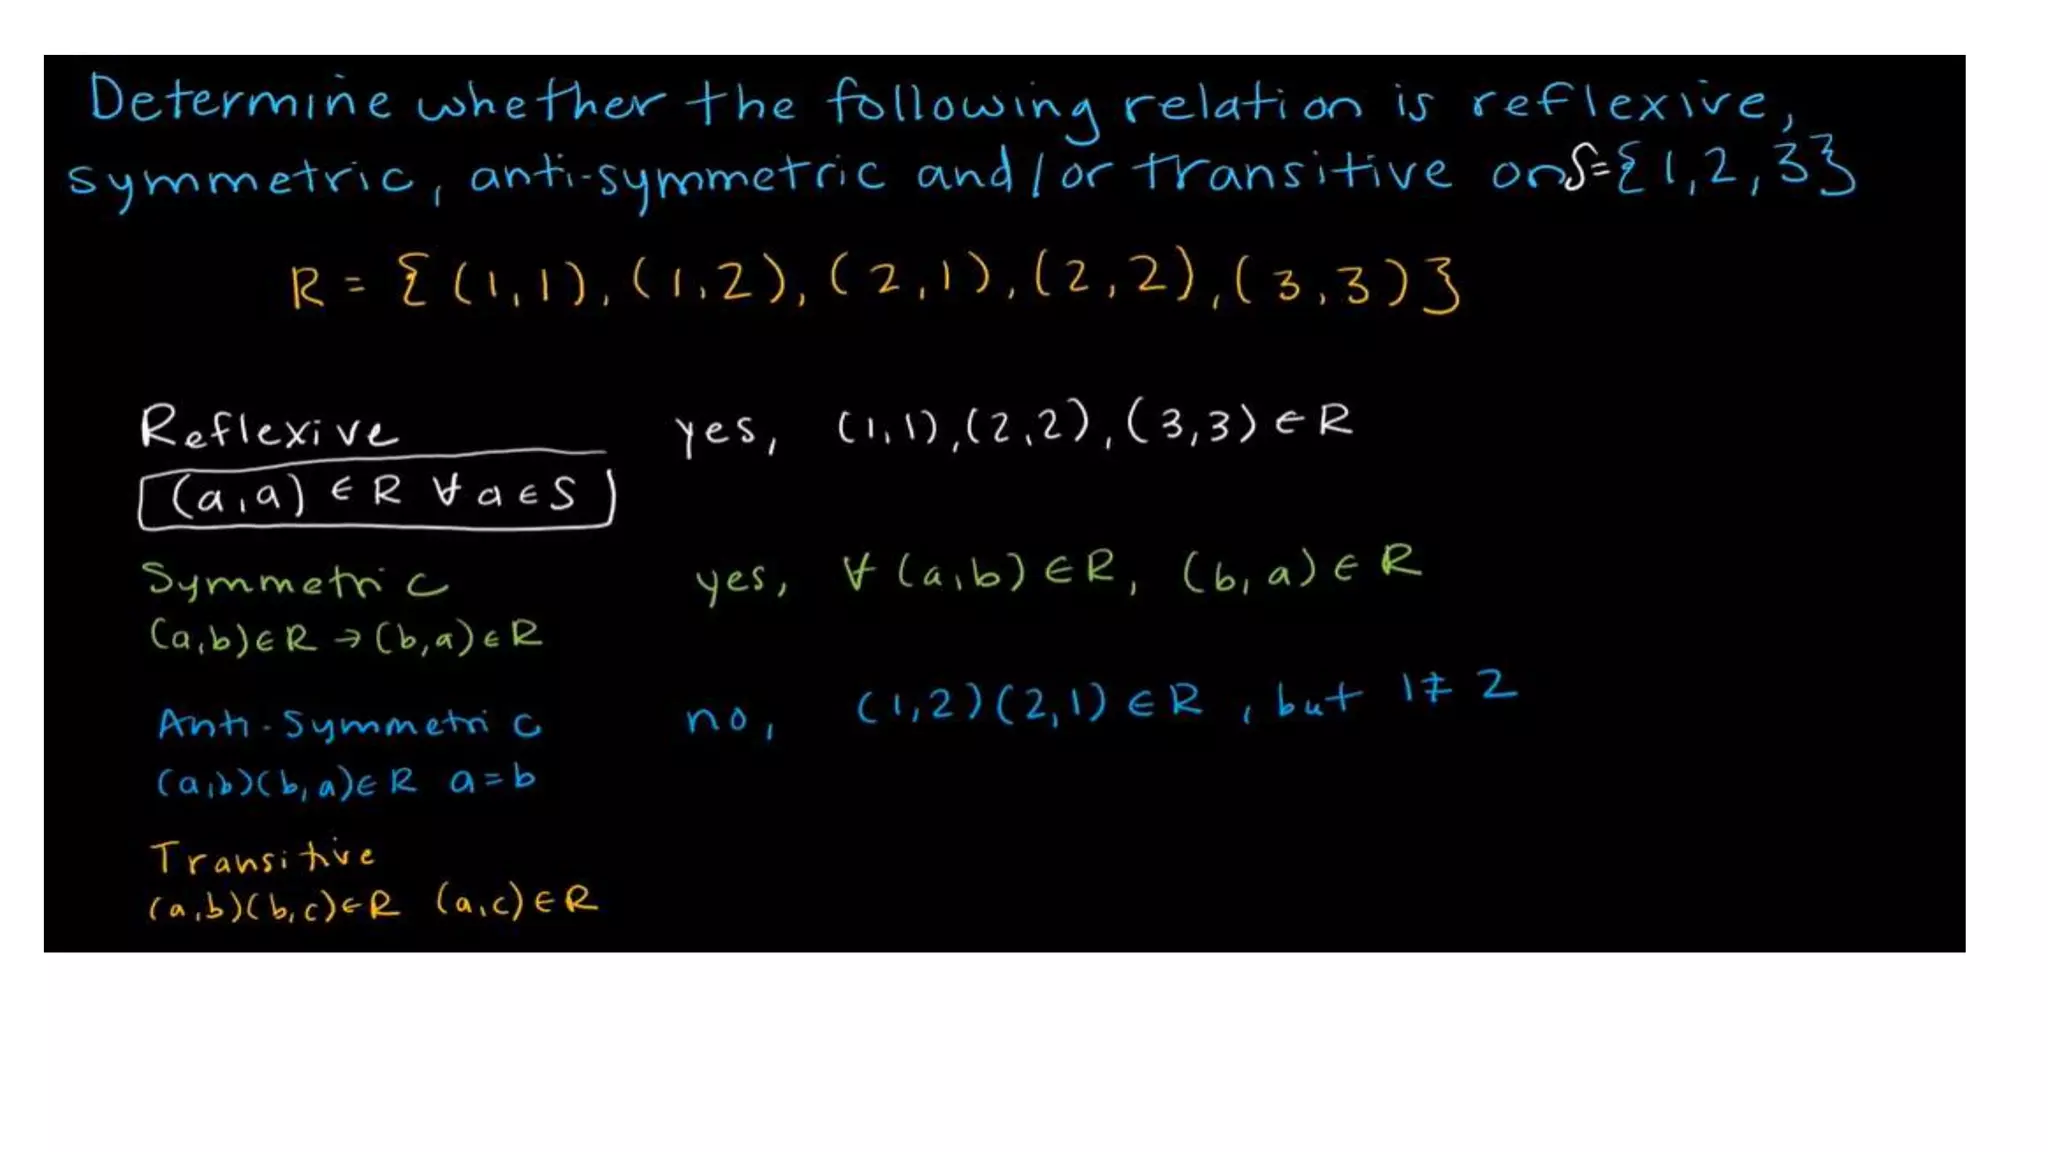 Determine whether the following relation is reflexive,
symmetric, anti-symmetric and/or transitive on S={1,2,3}
R = {(1,1), (1,2), (2,1), (2,2), (3,3)}
Reflexive yes, (1,1), (2,2), (3,3) ∈ R
(a,a) ∈ R ∀ a ∈ S
Symmetric yes, ∀ (a,b) ∈ R, (b,a) ∈ R
(a,b) ∈ R → (b,a) ∈ R
Anti-Symmetric no, (1,2)(2,1) ∈ R, but 1 ≠ 2
(a,b)(b,a) ∈ R a = b
Transitive
(a,b)(b,c) ∈ R (a,c) ∈ R